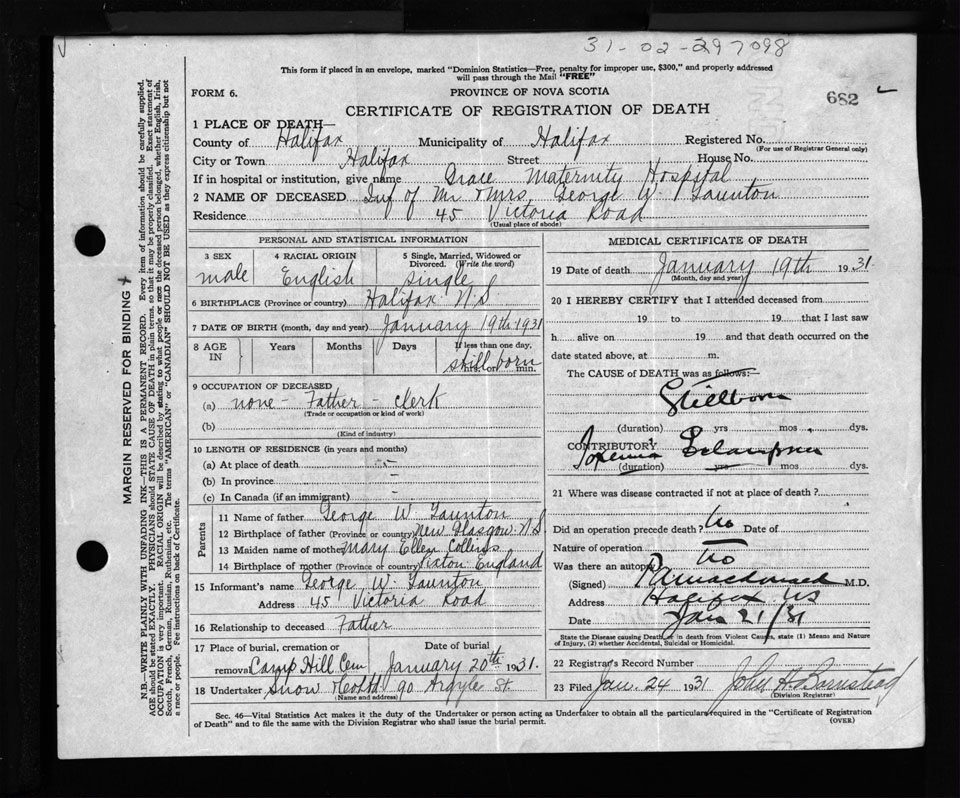 31-02-297098
This form if placed in an envelope, marked "Dominion Statistics—Free, penalty for improper use, $300," and properly addressed
will pass through the Mail "FREE"
FORM 6.
PROVINCE OF NOVA SCOTIA
682
CERTIFICATE OF REGISTRATION OF DEATH
1 PLACE OF DEATH—
County of Halifax Municipality of Halifax Registered No.
(For use of Registrar General only)
City or Town Halifax Street House No.
If in hospital or institution, give name Grace Maternity Hospital
2 NAME OF DECEASED Inf of Mr & Mrs George W Taunton
Residence 45 Victoria Road
(Usual place of abode)
PERSONAL AND STATISTICAL INFORMATION
3 SEX 4 RACIAL ORIGIN 5 Single, Married, Widowed or Divorced. (Write the word)
male English single
6 BIRTHPLACE (Province or country) Halifax N.S
7 DATE OF BIRTH (month, day and year) January 19th 1931
8 AGE IN Years Months Days If less than one day,
stillborn hrs. or min.
9 OCCUPATION OF DECEASED
(a) none - Father - clerk
(Trade or occupation or kind of work)
(b)
(Kind of industry)
10 LENGTH OF RESIDENCE (in years and months)
(a) At place of death -
(b) In province -
(c) In Canada (if an immigrant) -
Parents
11 Name of father George W. Taunton
12 Birthplace of father (Province or country) New Glasgow N.S
13 Maiden name of mother Mary Ellen Collins
14 Birthplace of mother (Province or country) England
15 Informant's name George W. Taunton
Address 45 Victoria Road
16 Relationship to deceased Father
17 Place of burial, cremation or removal Date of burial
Camp Hill Cem January 20th 1931.
18 Undertaker Snow & Co Ltd 90 Argyle St.
(Name and address)
MEDICAL CERTIFICATE OF DEATH
19 Date of death January 19th 1931.
(Month, day and year)
20 I HEREBY CERTIFY that I attended deceased from
19 to 19 that I last saw
h alive on 19 and that death occurred on the
date stated above, at m.
The CAUSE of DEATH was as follows:—
Stillborn
(duration) yrs mos dys.
CONTRIBUTORY
Toxemia Eclampsia
(duration) yrs mos dys.
21 Where was disease contracted if not at place of death?
Did an operation precede death? No Date of
Nature of operation
Was there an autopsy No
(Signed) M.D.
Address Halifax NS
Date Jan 21/31
State the Disease causing Death, or in death from Violent Causes, state (1) Means and Nature
of Injury, (2) whether Accidental, Suicidal or Homicidal.
22 Registrar's Record Number
23 Filed Jan. 24 1931 John H Barnstead
(Division Registrar)
Sec. 46—Vital Statistics Act makes it the duty of the Undertaker or person acting as Undertaker to obtain all the particulars required in the "Certificate of Registration
of Death" and to file the same with the Division Registrar who shall issue the burial permit. (OVER)
MARGIN RESERVED FOR BINDING
N.B.—WRITE PLAINLY WITH UNFADING INK—THIS IS A PERMANENT RECORD. Every item of information should be carefully supplied.
AGE should be stated EXACTLY. PHYSICIANS should STATE CAUSE OF DEATH in plain terms, so that it may be properly classified. Exact statement of
OCCUPATION is very important. RACIAL ORIGIN will be described by stating to what people or race the deceased person belonged, whether English, Irish,
Scotch, French, German, Russian, Ruthenian, etc. The terms "AMERICAN" or "CANADIAN" SHOULD NOT BE USED as they express citizenship but not
a race or people. Fee instructions on back of Certificate.